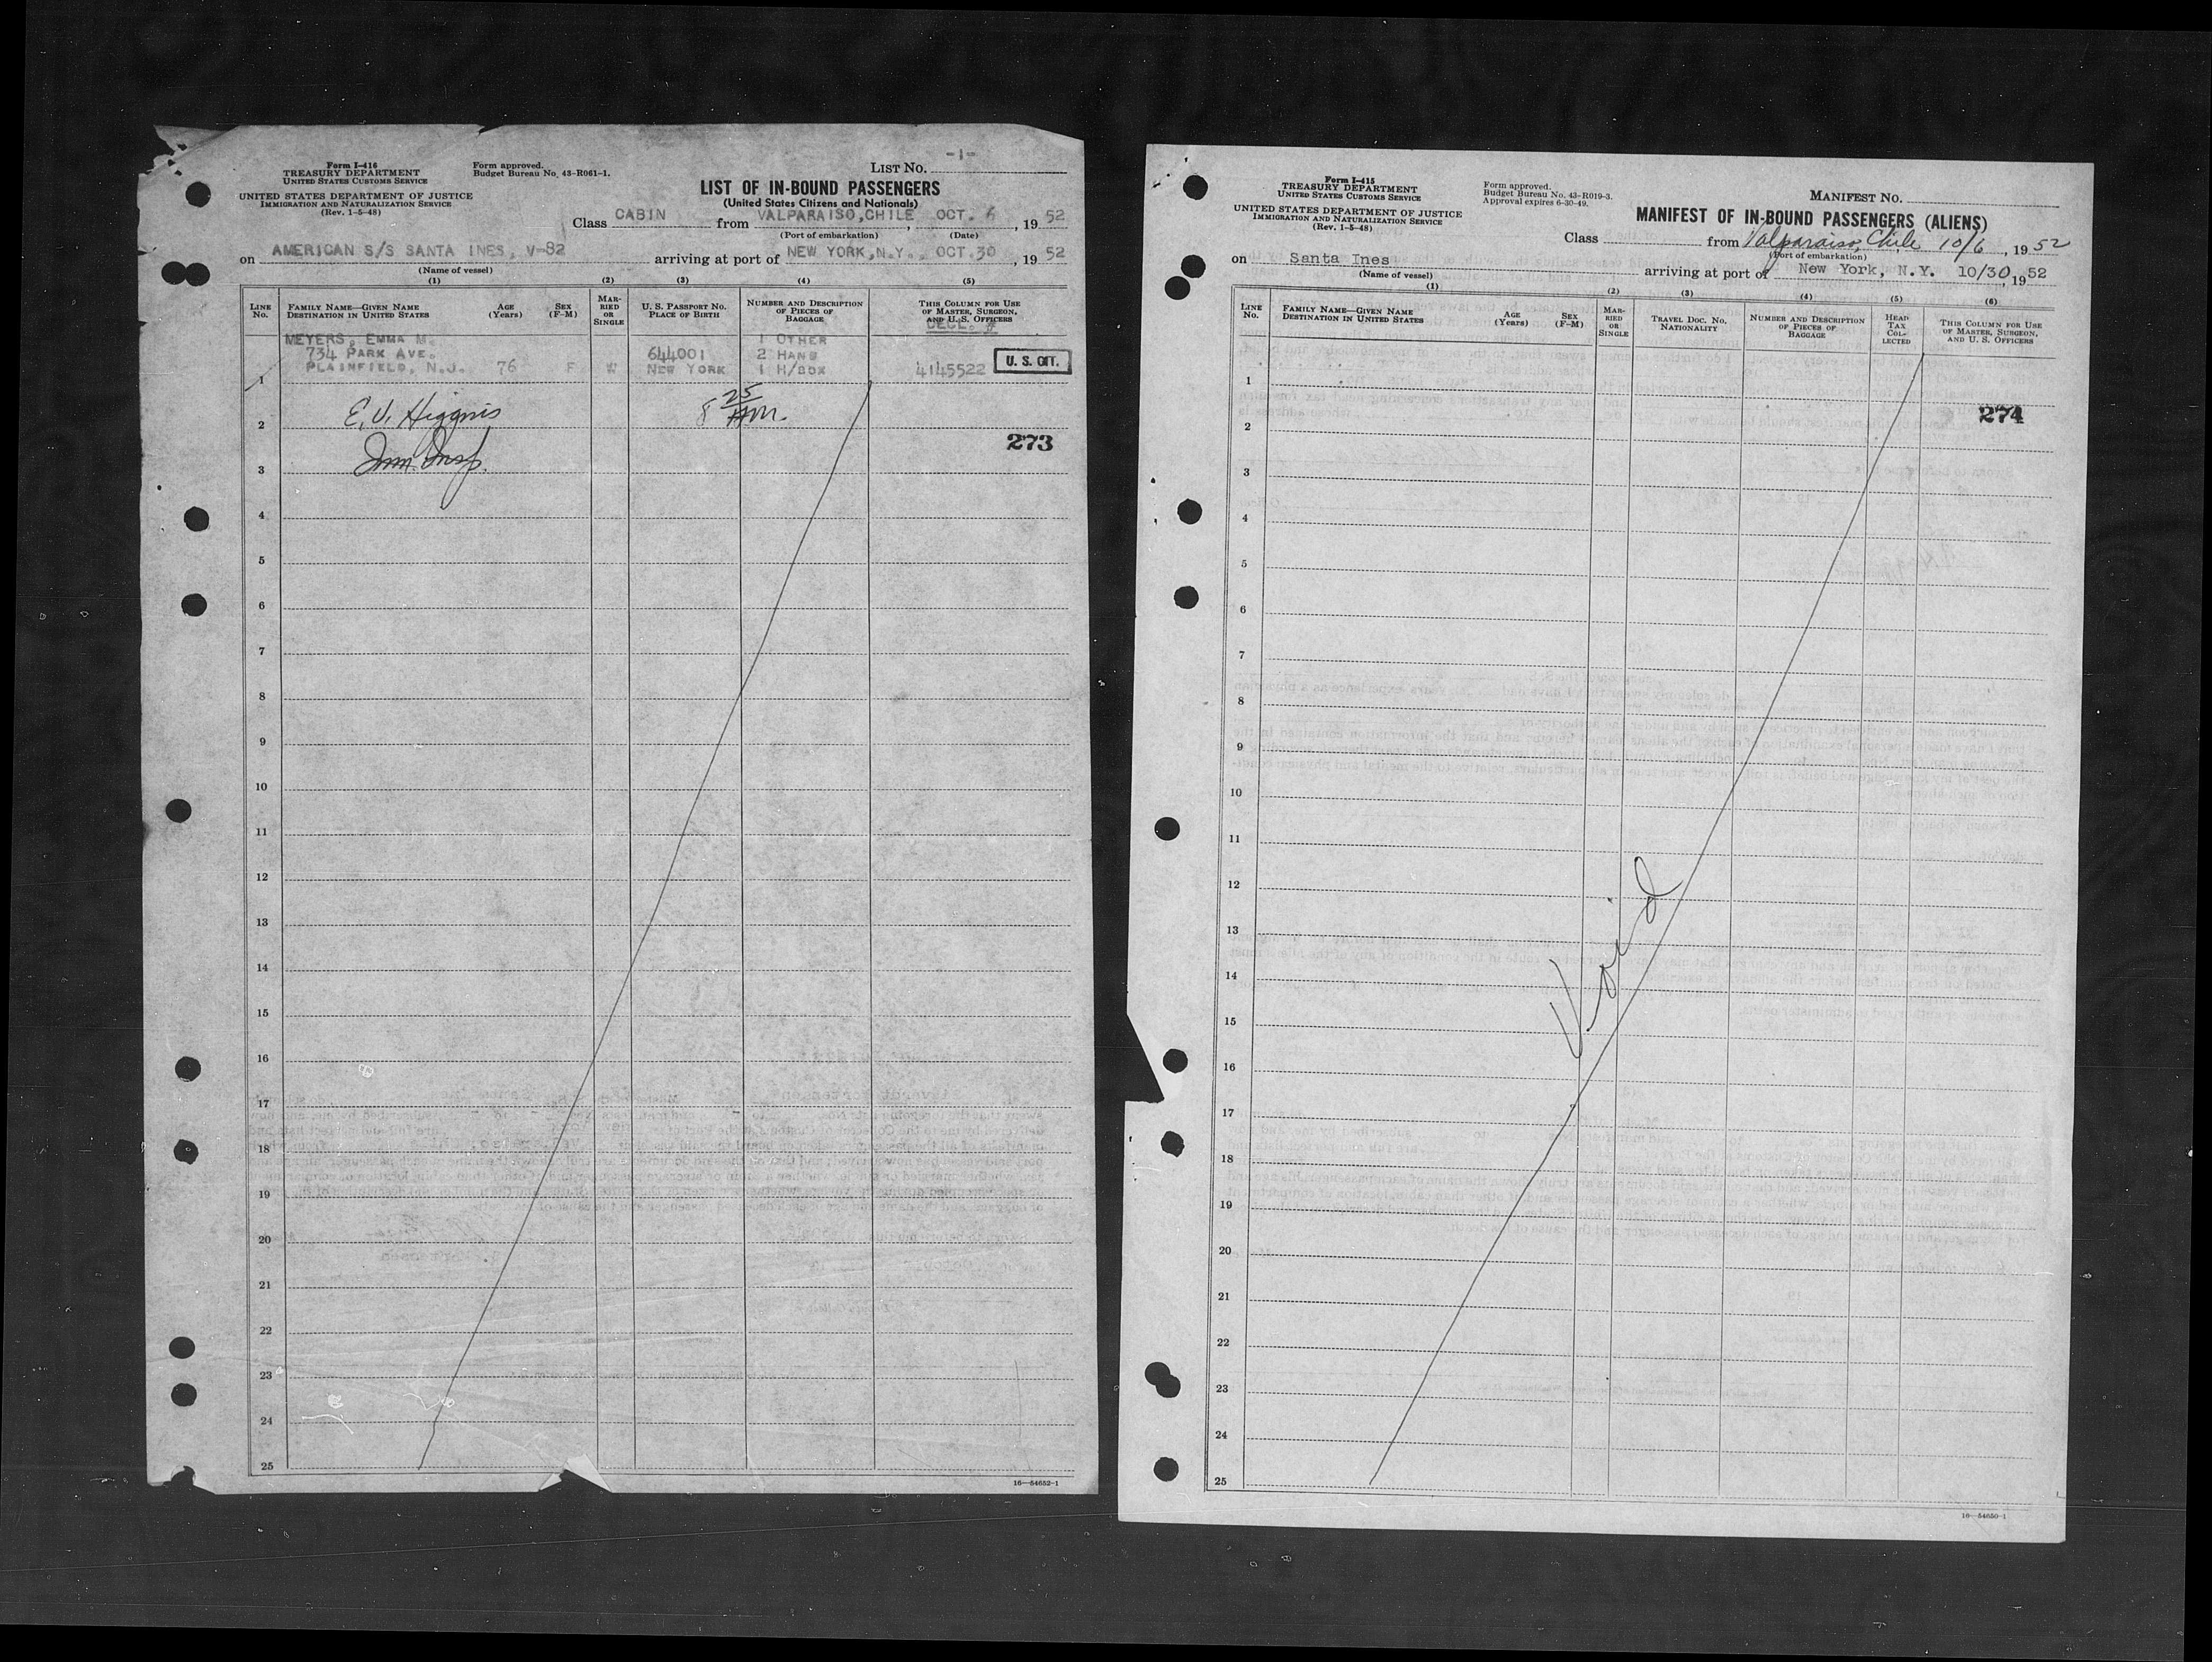 Form I-416
TREASURY DEPARTMENT
UNITED STATES CUSTOMS SERVICE
UNITED STATES DEPARTMENT OF JUSTICE
IMMIGRATION AND NATURALIZATION SERVICE
(Rev. 1-5-48)
Form approved.
Budget Bureau No. 43-R061-1.
LIST No. -1-
LIST OF IN-BOUND PASSENGERS
(United States Citizens and Nationals)
Class CABIN from VALPARAISO, CHILE OCT. 6, 1952
(Port of embarkation) (Date)
on AMERICAN S/S SANTA INES, V-82 arriving at port of NEW YORK, N.Y., OCT.30, 1952
(Name of vessel)
(1) (2) (3) (4) (5)
LINE No.
FAMILY NAME—GIVEN NAME
DESTINATION IN UNITED STATES
AGE (Years)
SEX (F-M)
MARRIED OR SINGLE
U. S. PASSPORT No.
PLACE OF BIRTH
NUMBER AND DESCRIPTION OF PIECES OF BAGGAGE
THIS COLUMN FOR USE OF MASTER, SURGEON, AND U. S. OFFICERS
DECL. #
MEYERS, EMMA M. 1 OTHER
734 PARK AVE. 644001 2 HANG
PLAINFIELD, N.J. 76 F W NEW YORK 1 H/BOX 4145522 U. S. CIT.
1
E. V. Higgins 8 25 AM.
2
273
Imm. Insp.
3
4
5
6
7
8
9
10
11
12
13
14
15
16
17
18
19
20
21
22
23
24
25
16—54652-1
Form I-415
TREASURY DEPARTMENT
UNITED STATES CUSTOMS SERVICE
UNITED STATES DEPARTMENT OF JUSTICE
IMMIGRATION AND NATURALIZATION SERVICE
(Rev. 1-5-48)
Form approved.
Budget Bureau No. 43-R019-3.
Approval expires 6-30-49.
MANIFEST No.
MANIFEST OF IN-BOUND PASSENGERS (ALIENS)
Class from Valparaiso, Chile 10/6, 1952
(Port of embarkation)
on Santa Ines arriving at port of New York, N.Y. 10/30, 1952
(Name of vessel)
(1) (2) (3) (4) (5) (6)
LINE No.
FAMILY NAME—GIVEN NAME
DESTINATION IN UNITED STATES
AGE (Years)
SEX (F-M)
MARRIED OR SINGLE
TRAVEL DOC. No.
NATIONALITY
NUMBER AND DESCRIPTION OF PIECES OF BAGGAGE
HEAD TAX COLLECTED
THIS COLUMN FOR USE OF MASTER, SURGEON, AND U. S. OFFICERS
1
274
2
3
4
5
6
7
8
9
10
11
12
Void
13
14
15
16
17
18
19
20
21
22
23
24
25
16—54650-1